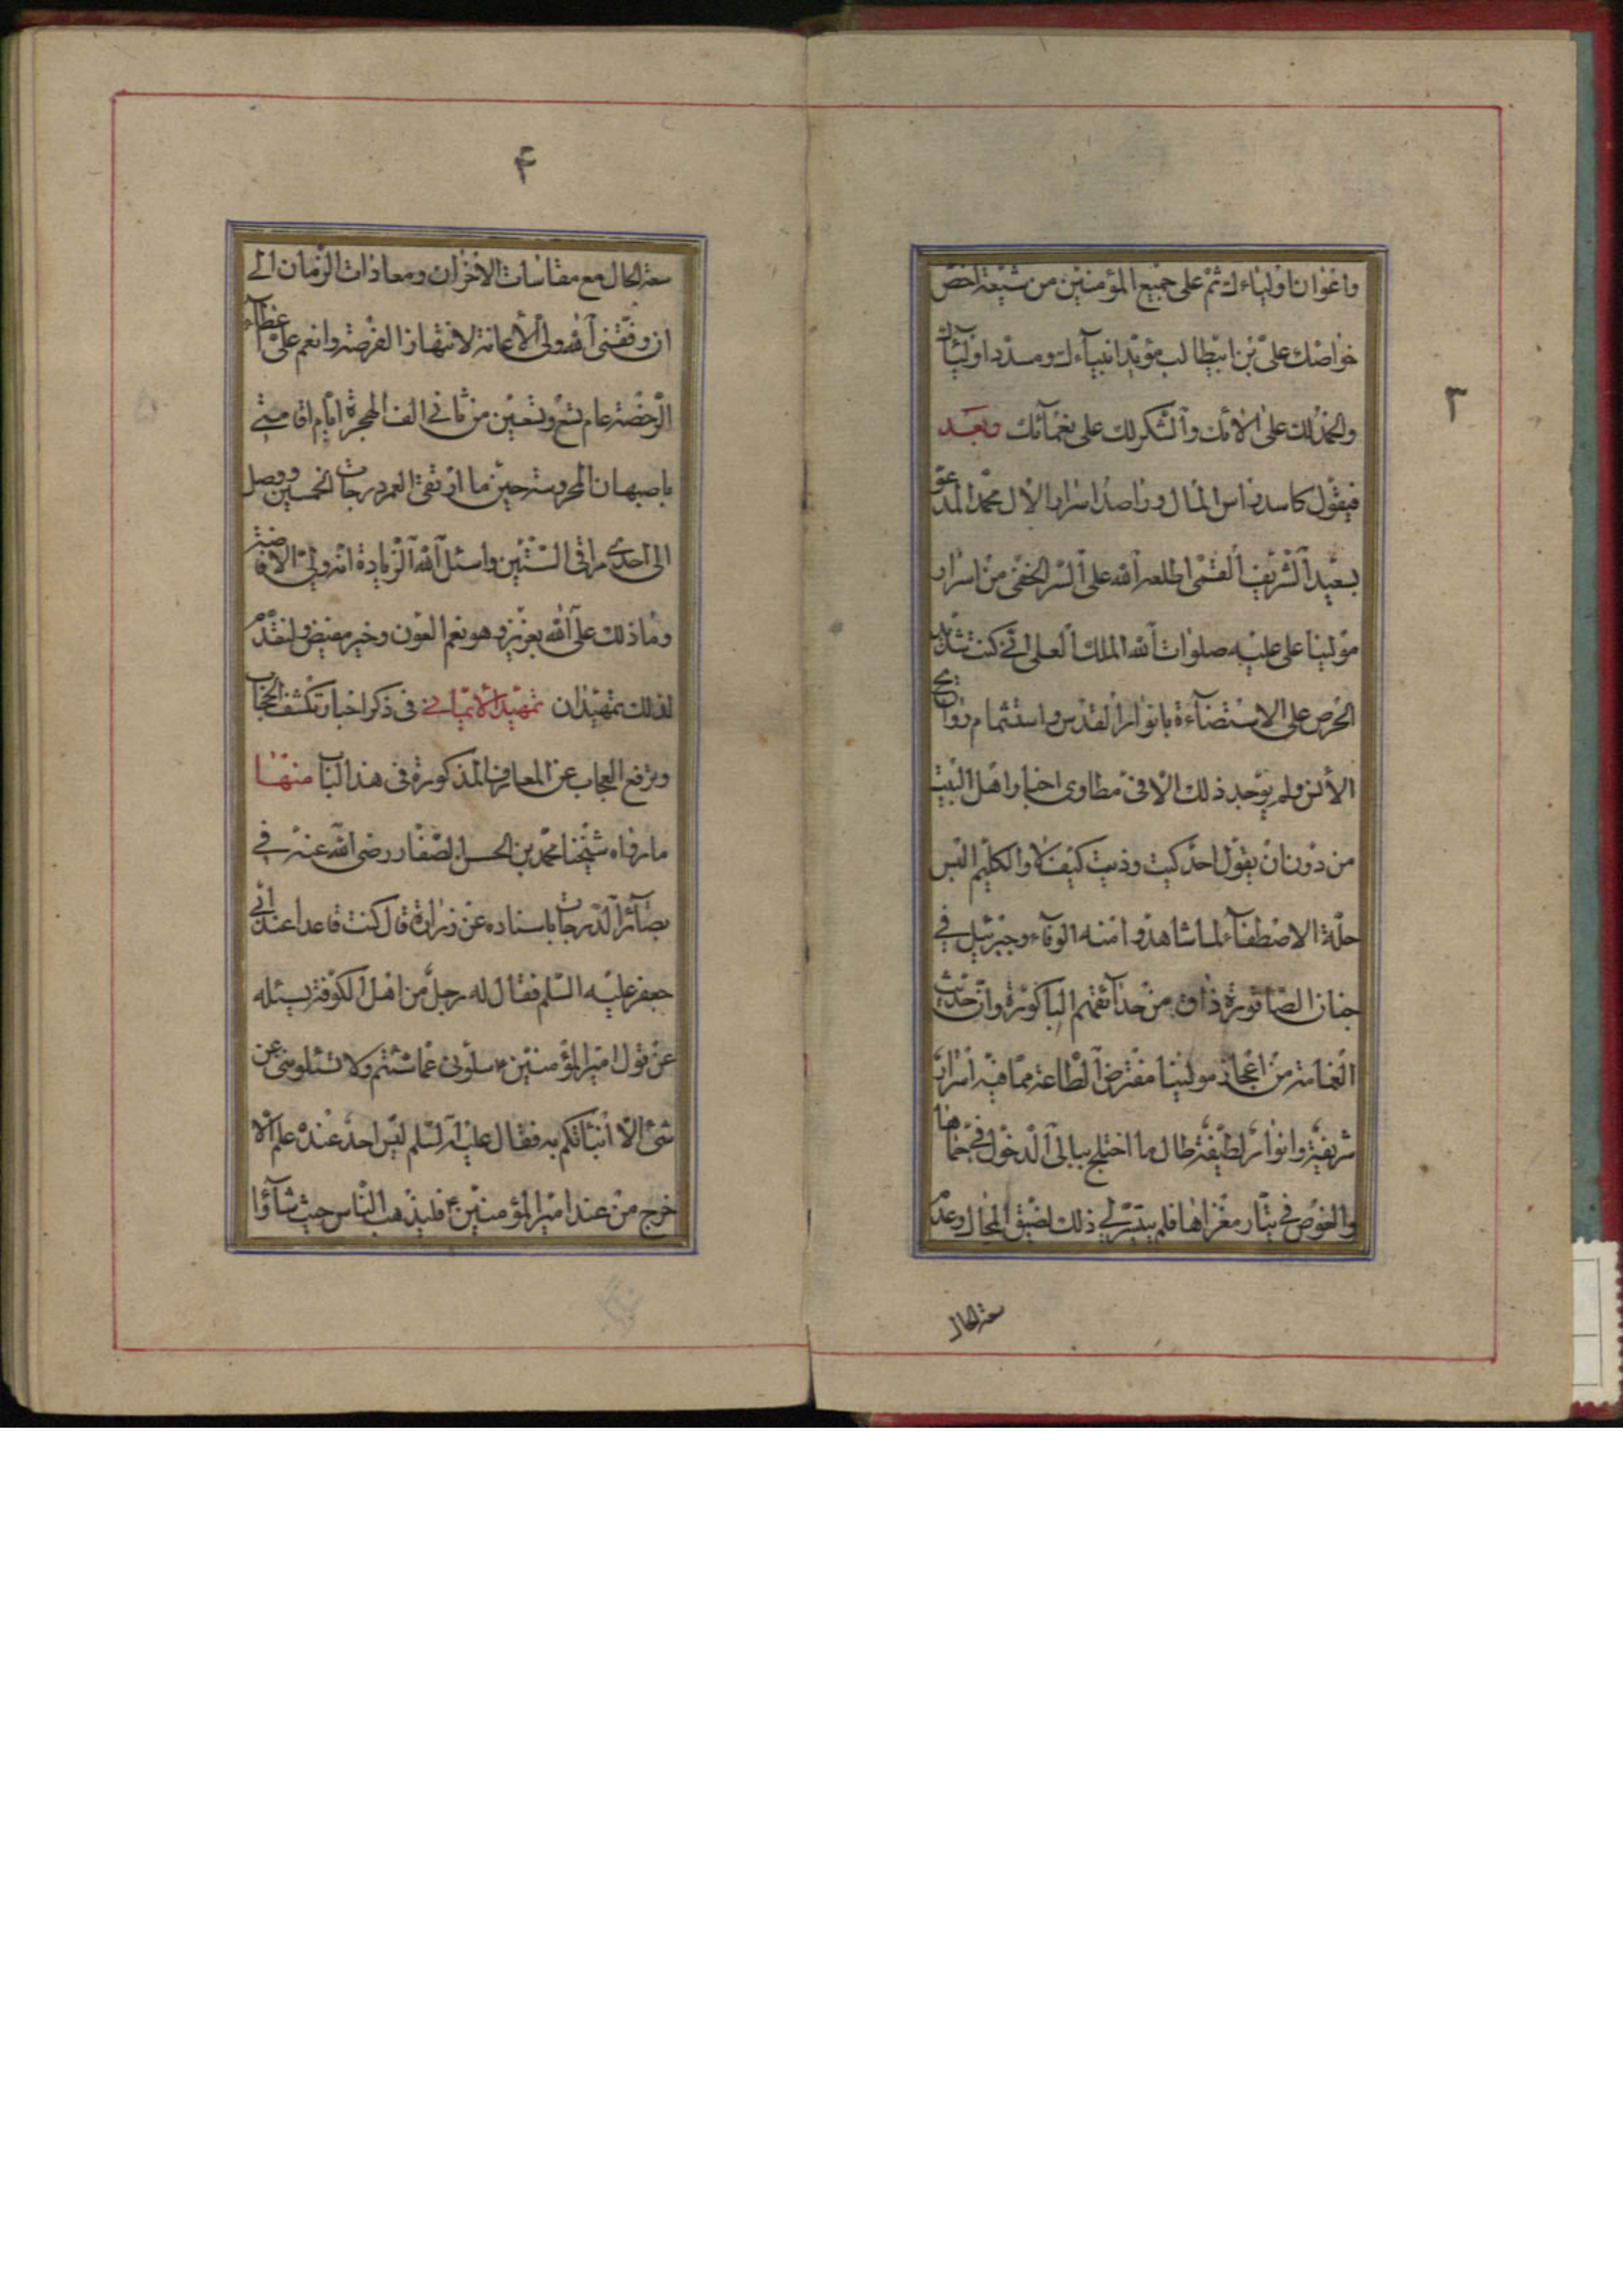 ٣
واعوان اوليائك ثم على جميع المؤمنين من شيعة اخص
خواصك على بن ابيطالب مؤيد انبيآءك ومسدد اوليآئك
والحمد لك على الآئك والشكر لك على نعمآئك وبعد
فيقول كاسد راس المال وراصد اسرار الآل محمد المدعو
بسعيد الشريف القمى اطلعه الله على السر الخفى من اسرار
مولينا على عليه صلوات الله الملك العلى انى كنت شديد
الحرص على الاستضآءة بانوار القدس واستشمام روايح
الانس ولم يوجد ذلك الا فى مطاوى اخبار اهل البيت
من دون ان يقول احد كيت وذيت كيف لا والكليم البس
حلة الاصطفآء لما شاهدوا منه الوفآء وجبرئيل فى
جنان الصاقورة ذاق من حدآئقهم الباكورة وان حديث
الغمامة من اعجاز مولينا مفترض الطاعة مما فيه اسرار
شريفة وانوار لطيفة طال ما اختلج ببالى الدخول فى حماها
والغوص فى تيار مغزاها فلم يتيسر لى ذلك لضيق المجال وعدم
سعة الحال
۴
سعة الحال مع مقاسات الاحزان ومعادات الزمان الى
ان وفقنى الله ولى الاعانة لانتهاز الفرصة وانعم على عطآء
الرخصة عام تسع وتسعين من ثانى الف الهجرة ايام اقامتى
باصبهان المحروسة حين ما ارتقى العمر درجات الخمسين ووصل
الى احدى مراقى الستين واسئل الله الزيادة انه ولى الافاضة
وما ذلك على الله بعزيز وهو نعم العون وخير مفيض ولنقدم
لذلك تمهيدان تمهيد الايمانى فى ذكر اخبار تكشف الحجاب
وترفع العجاب عن المعارف المذكورة فى هذا الباب منها
ما رواه شيخنا محمد بن الحسن الصفار رضى الله عنه فى
بصآئر الدرجات باسناده عن زرارة قال كنت قاعدا عند ابى
جعفر عليه السلم فقال له رجل من اهل الكوفة يسئله
عن قول امير المؤمنين ع سلونى عما شئتم ولا تسئلونى عن
شئ الا انباتكم به فقال عليه السلم ليس احد عنده علم الا
خرج من عند امير المؤمنين ع فليذهب الناس حيث شآؤا